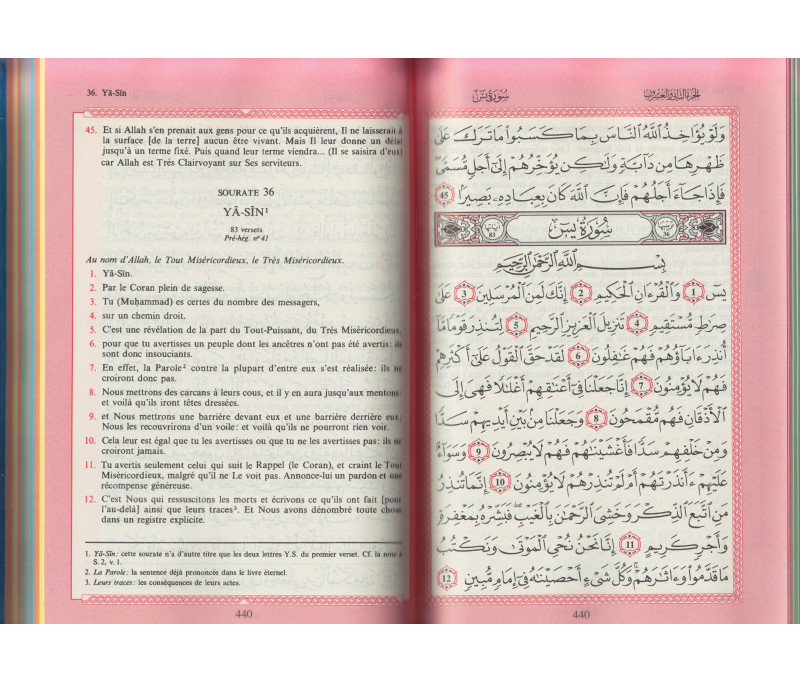 36. Yā-Sîn
45. Et si Allah s'en prenait aux gens pour ce qu'ils acquièrent, Il ne laisserait à
la surface [de la terre] aucun être vivant. Mais Il leur donne un délai
jusqu'à un terme fixé. Puis quand leur terme viendra... (Il se saisira d'eux)
car Allah est Très Clairvoyant sur Ses serviteurs.
SOURATE 36
YĀ-SÎN¹
83 versets
Pré-hég. n° 41
Au nom d'Allah, le Tout Miséricordieux, le Très Miséricordieux.
1. Yā-Sîn.
2. Par le Coran plein de sagesse.
3. Tu (Muḥammad) es certes du nombre des messagers,
4. sur un chemin droit.
5. C'est une révélation de la part du Tout-Puissant, du Très Miséricordieux,
6. pour que tu avertisses un peuple dont les ancêtres n'ont pas été avertis: ils
sont donc insouciants.
7. En effet, la Parole² contre la plupart d'entre eux s'est réalisée: ils ne
croiront donc pas.
8. Nous mettrons des carcans à leurs cous, et il y en aura jusqu'aux mentons:
et voilà qu'ils iront têtes dressées.
9. et Nous mettrons une barrière devant eux et une barrière derrière eux;
Nous les recouvrirons d'un voile: et voilà qu'ils ne pourront rien voir.
10. Cela leur est égal que tu les avertisses ou que tu ne les avertisses pas: ils ne
croiront jamais.
11. Tu avertis seulement celui qui suit le Rappel (le Coran), et craint le Tout
Miséricordieux, malgré qu'il ne Le voit pas. Annonce-lui un pardon et une
récompense généreuse.
12. C'est Nous qui ressuscitons les morts et écrivons ce qu'ils ont fait [pour
l'au-delà] ainsi que leurs traces³. Et Nous avons dénombré toute chose
dans un registre explicite.
1. Yā-Sîn: cette sourate n'a d'autre titre que les deux lettres Y.S. du premier verset. Cf. la note à
S. 2, v. 1.
2. La Parole: la sentence déjà prononcée dans le livre éternel.
3. Leurs traces: les conséquences de leurs actes.
440
سُورَةُ يسٓ
الجزء الثاني والعشرون
وَلَوْ يُؤَاخِذُ ٱللَّهُ ٱلنَّاسَ بِمَا كَسَبُوا۟ مَا تَرَكَ عَلَىٰ
ظَهْرِهَا مِن دَآبَّةٍ وَلَٰكِن يُؤَخِّرُهُمْ إِلَىٰٓ أَجَلٍ مُّسَمًّى
فَإِذَا جَآءَ أَجَلُهُمْ فَإِنَّ ٱللَّهَ كَانَ بِعِبَادِهِۦ بَصِيرًۢا 45
سُورَةُ يسٓ
83
36
بِسْمِ ٱللَّهِ ٱلرَّحْمَٰنِ ٱلرَّحِيمِ
يسٓ 1 وَٱلْقُرْءَانِ ٱلْحَكِيمِ 2 إِنَّكَ لَمِنَ ٱلْمُرْسَلِينَ 3 عَلَىٰ
صِرَٰطٍ مُّسْتَقِيمٍ 4 تَنزِيلَ ٱلْعَزِيزِ ٱلرَّحِيمِ 5 لِتُنذِرَ قَوْمًا مَّآ
أُنذِرَ ءَابَآؤُهُمْ فَهُمْ غَٰفِلُونَ 6 لَقَدْ حَقَّ ٱلْقَوْلُ عَلَىٰٓ أَكْثَرِهِمْ
فَهُمْ لَا يُؤْمِنُونَ 7 إِنَّا جَعَلْنَا فِىٓ أَعْنَٰقِهِمْ أَغْلَٰلًا فَهِىَ إِلَى
ٱلْأَذْقَانِ فَهُم مُّقْمَحُونَ 8 وَجَعَلْنَا مِنۢ بَيْنِ أَيْدِيهِمْ سَدًّا
وَمِنْ خَلْفِهِمْ سَدًّا فَأَغْشَيْنَٰهُمْ فَهُمْ لَا يُبْصِرُونَ 9 وَسَوَآءٌ
عَلَيْهِمْ ءَأَنذَرْتَهُمْ أَمْ لَمْ تُنذِرْهُمْ لَا يُؤْمِنُونَ 10 إِنَّمَا تُنذِرُ
مَنِ ٱتَّبَعَ ٱلذِّكْرَ وَخَشِىَ ٱلرَّحْمَٰنَ بِٱلْغَيْبِ فَبَشِّرْهُ بِمَغْفِرَةٍ
وَأَجْرٍ كَرِيمٍ 11 إِنَّا نَحْنُ نُحْىِ ٱلْمَوْتَىٰ وَنَكْتُبُ
مَا قَدَّمُوا۟ وَءَاثَٰرَهُمْ وَكُلَّ شَىْءٍ أَحْصَيْنَٰهُ فِىٓ إِمَامٍ مُّبِينٍ 12
440